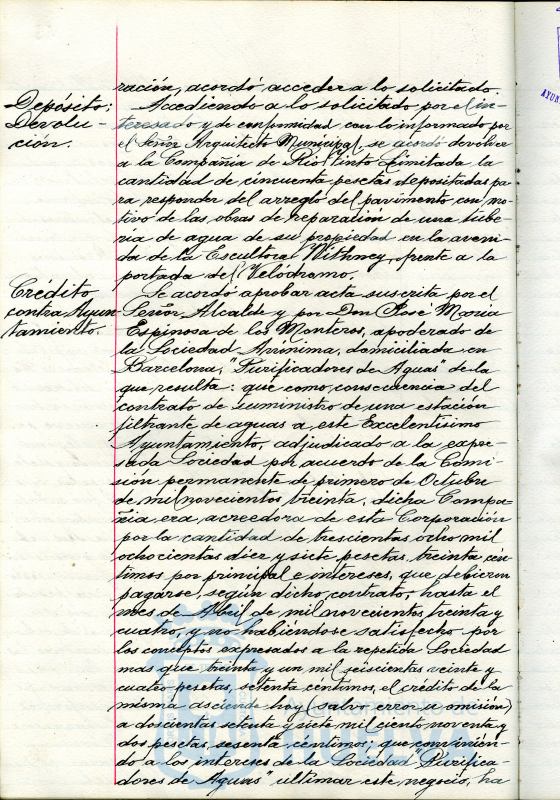 ración, acordó acceder a lo solicitado.
Depósito:
Devolu-
ción.
Accediendo a lo solicitado por el in-
teresado y de conformidad con lo informado por
el Señor Arquitecto Municipal, se acordó devolver
a la Compañia de Rio Tinto Limitada la
cantidad de cincuenta pesetas depositadas pa-
ra responder del arreglo del pavimento con mo-
tivo de las obras de reparación de una tube-
ria de agua de su propiedad en la aveni-
da de la Escultora Withney, frente a la
portada del Velodromo.
Crédito
contra Ayun-
tamiento.
Se acordó aprobar acta suscrita por el
Señor Alcalde y por Don José Maria
Espinosa de los Monteros, apoderado de
la Sociedad Anónima, domiciliada en
Barcelona, "Purificadores de Aguas" de la
que resulta: que como consecuencia del
contrato de suministro de una estación
filtrante de aguas a este Excelentísimo
Ayuntamiento, adjudicado a la expre-
sada Sociedad por acuerdo de la Comi-
sión permanente de primero de Octubre
de mil novecientos treinta, dicha Compa-
ñia era acreedora de esta Corporación
por la cantidad de trescientas ocho mil
ochocientas diez y siete pesetas, treinta cén-
timos por principal e intereses, que debieron
pagarse, según dicho contrato, hasta el
mes de Abril de mil novecientos treinta y
cuatro, y no habiéndose satisfecho por
los conceptos expresados a la repetida Sociedad
mas que treinta y un mil seiscientas veinte y
cuatro pesetas, setenta céntimos, el crédito de la
misma asciende hoy (salvo error u omisión)
a doscientas setenta y siete mil ciento noventa y
dos pesetas, sesenta céntimos; que convinien-
do a los intereses de la Sociedad "Purifica-
dores de Aguas" ultimar este negocio, ha
HUELVA